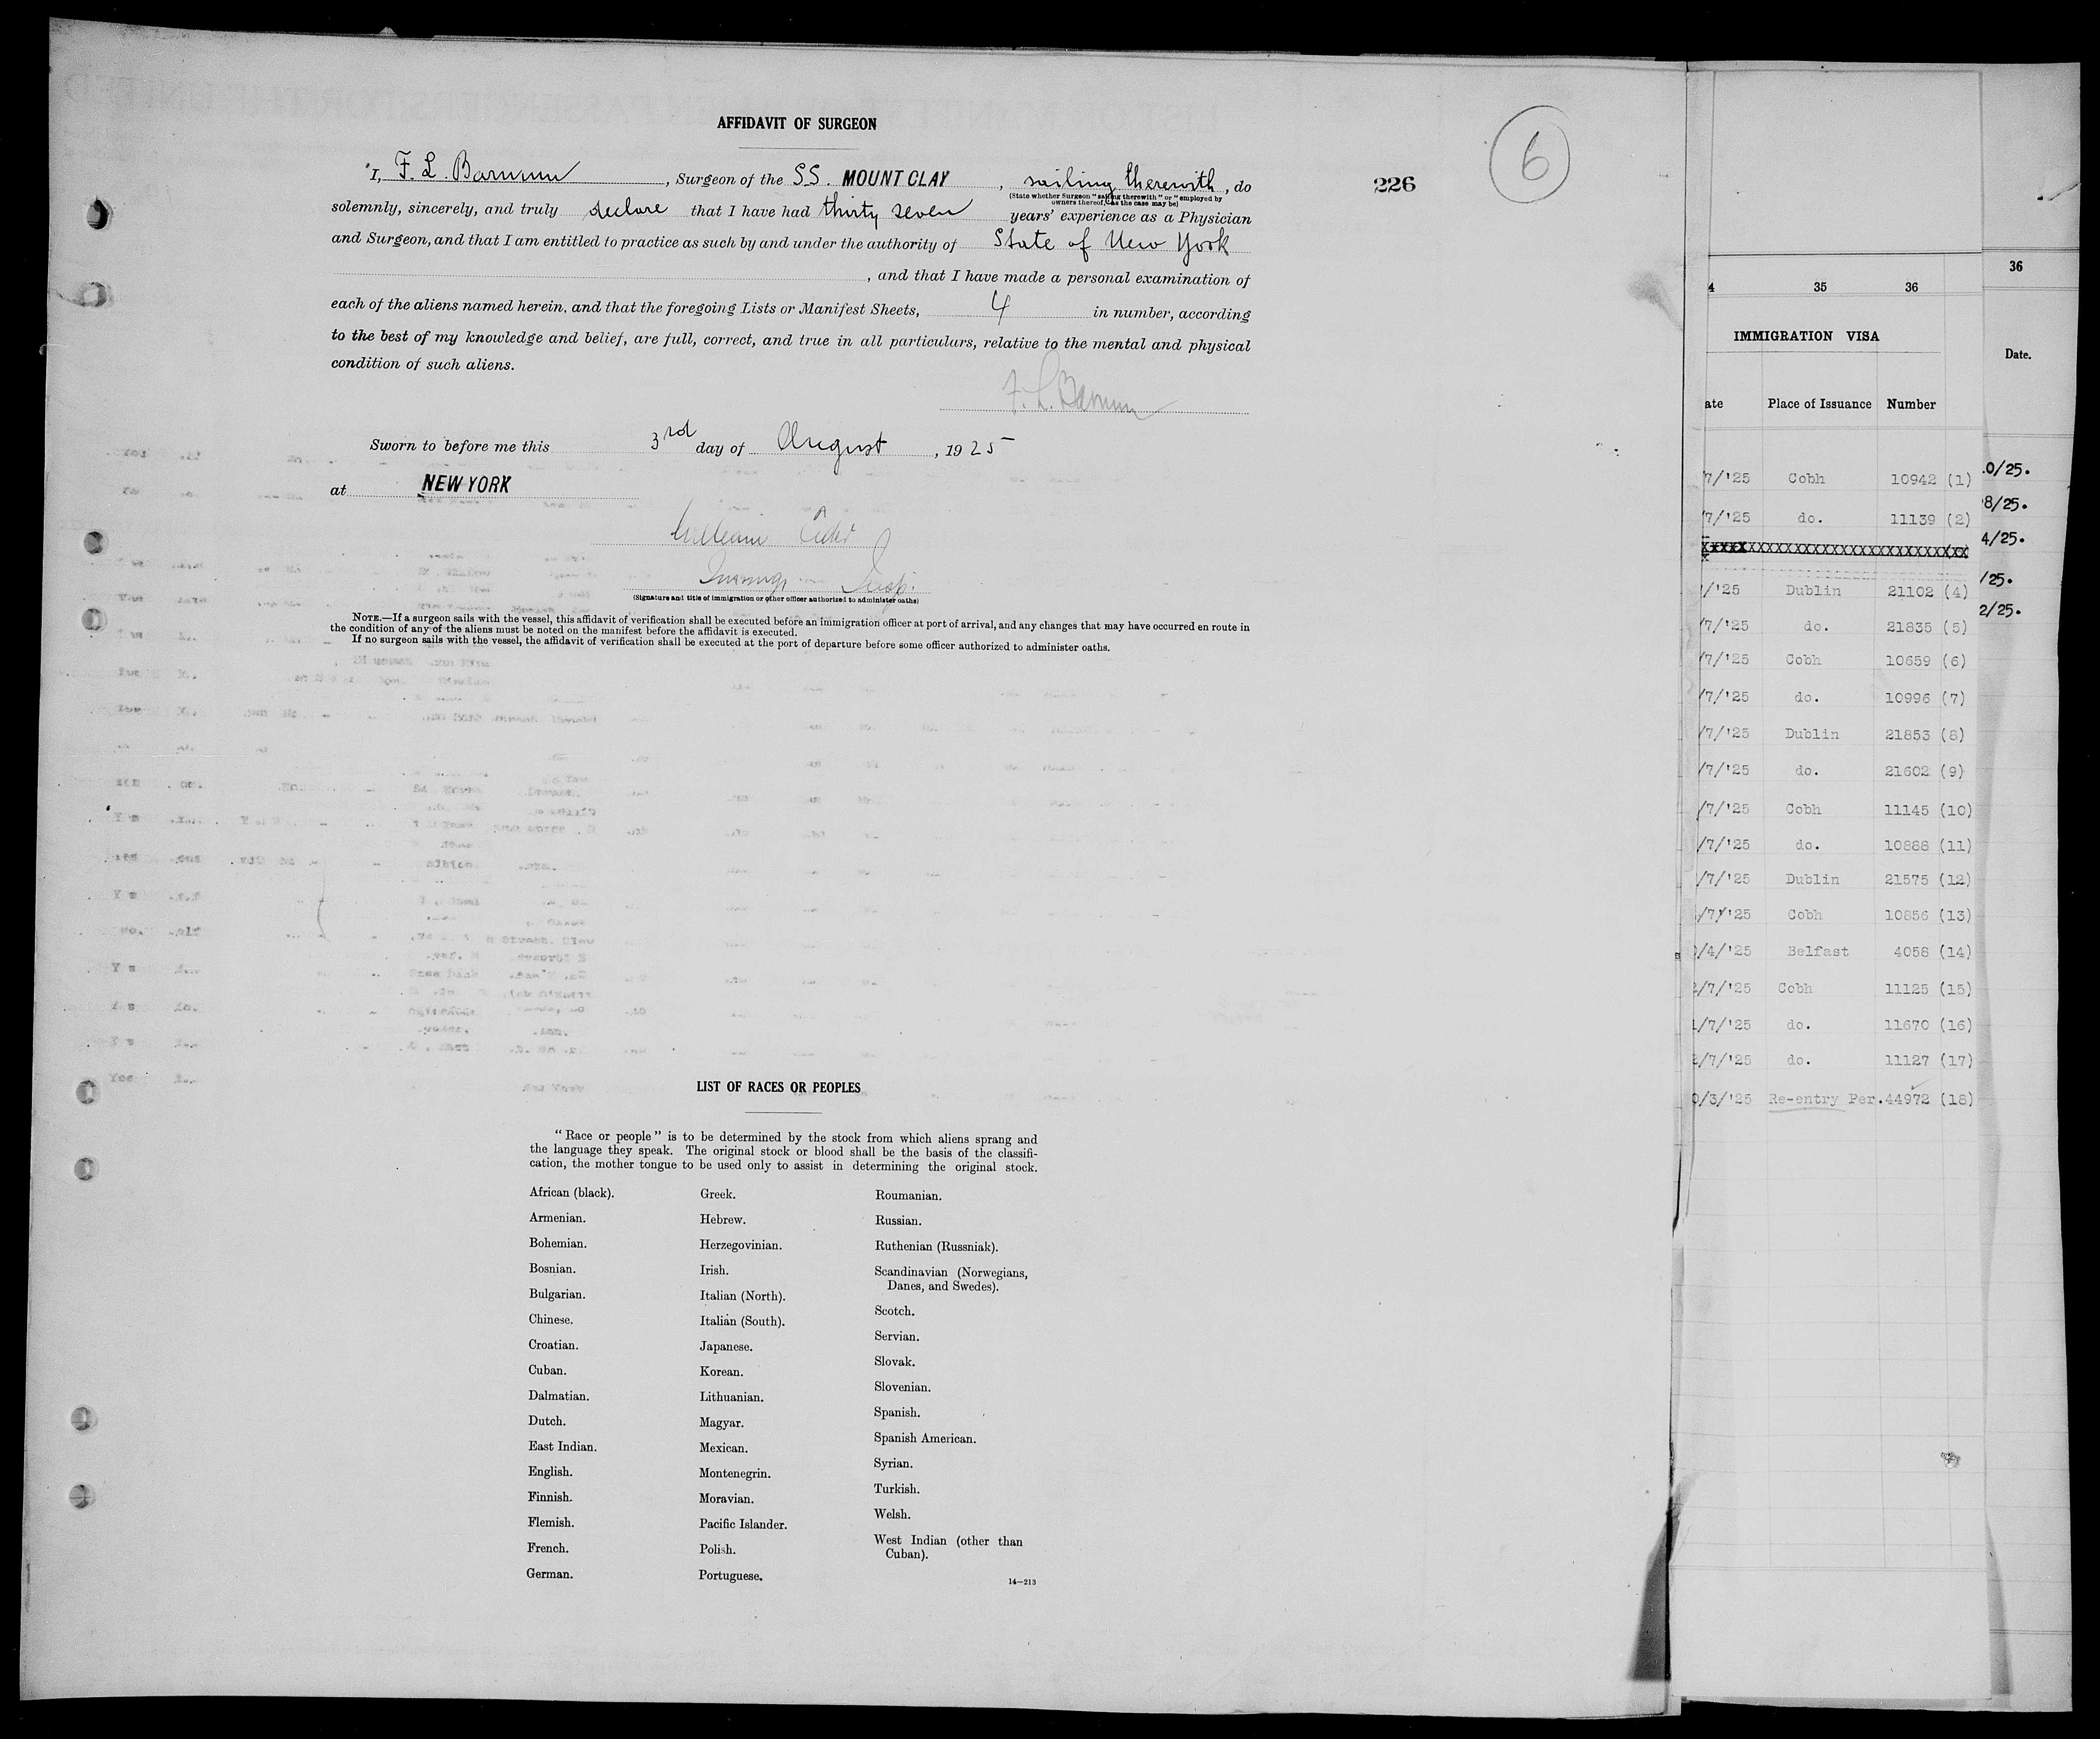 AFFIDAVIT OF SURGEON
6
226
I, F. L. Barnum, Surgeon of the SS. MOUNT CLAY, sailing therewith, do
(State whether Surgeon "sailing therewith" or "employed by
owners thereof," as the case may be)
solemnly, sincerely, and truly declare that I have had thirty seven years' experience as a Physician
and Surgeon, and that I am entitled to practice as such by and under the authority of State of New York
, and that I have made a personal examination of
each of the aliens named herein, and that the foregoing Lists or Manifest Sheets, 4 in number, according
to the best of my knowledge and belief, are full, correct, and true in all particulars, relative to the mental and physical
condition of such aliens.
F. L. Barnum
Sworn to before me this 3rd day of August, 1925
at NEW YORK
William
Immig. Insp.
(Signature and title of immigration or other officer authorized to administer oaths)
NOTE.—If a surgeon sails with the vessel, this affidavit of verification shall be executed before an immigration officer at port of arrival, and any changes that may have occurred en route in
the condition of any of the aliens must be noted on the manifest before the affidavit is executed.
If no surgeon sails with the vessel, the affidavit of verification shall be executed at the port of departure before some officer authorized to administer oaths.
LIST OF RACES OR PEOPLES
"Race or people" is to be determined by the stock from which aliens sprang and
the language they speak. The original stock or blood shall be the basis of the classifi-
cation, the mother tongue to be used only to assist in determining the original stock.
African (black).
Armenian.
Bohemian.
Bosnian.
Bulgarian.
Chinese.
Croatian.
Cuban.
Dalmatian.
Dutch.
East Indian.
English.
Finnish.
Flemish.
French.
German.
Greek.
Hebrew.
Herzegovinian.
Irish.
Italian (North).
Italian (South).
Japanese.
Korean.
Lithuanian.
Magyar.
Mexican.
Montenegrin.
Moravian.
Pacific Islander.
Polish.
Portuguese.
Roumanian.
Russian.
Ruthenian (Russniak).
Scandinavian (Norwegians,
Danes, and Swedes).
Scotch.
Servian.
Slovak.
Slovenian.
Spanish.
Spanish American.
Syrian.
Turkish.
Welsh.
West Indian (other than
Cuban).
14—213
4 35 36
IMMIGRATION VISA
ate Place of Issuance Number
7/'25 Cobh 10942 (1)
/7/'25 do. 11139 (2)
XXXXXXXXXXXXXXXXXXXXXXXXXX
/'25 Dublin 21102 (4)
/7/'25 do. 21835 (5)
/7/'25 Cobh 10659 (6)
/7/'25 do. 10996 (7)
/7/'25 Dublin 21853 (8)
/7/'25 do. 21602 (9)
/7/'25 Cobh 11145 (10)
/7/'25 do. 10888 (11)
/7/'25 Dublin 21575 (12)
/7/'25 Cobh 10856 (13)
/4/'25 Belfast 4058 (14)
2/7/'25 Cobh 11125 (15)
1/7/'25 do. 11670 (16)
2/7/'25 do. 11127 (17)
0/3/'25 Re-entry Per. 44972 (18)
36
Date.
.0/25.
8/25.
4/25.
/25.
2/25.